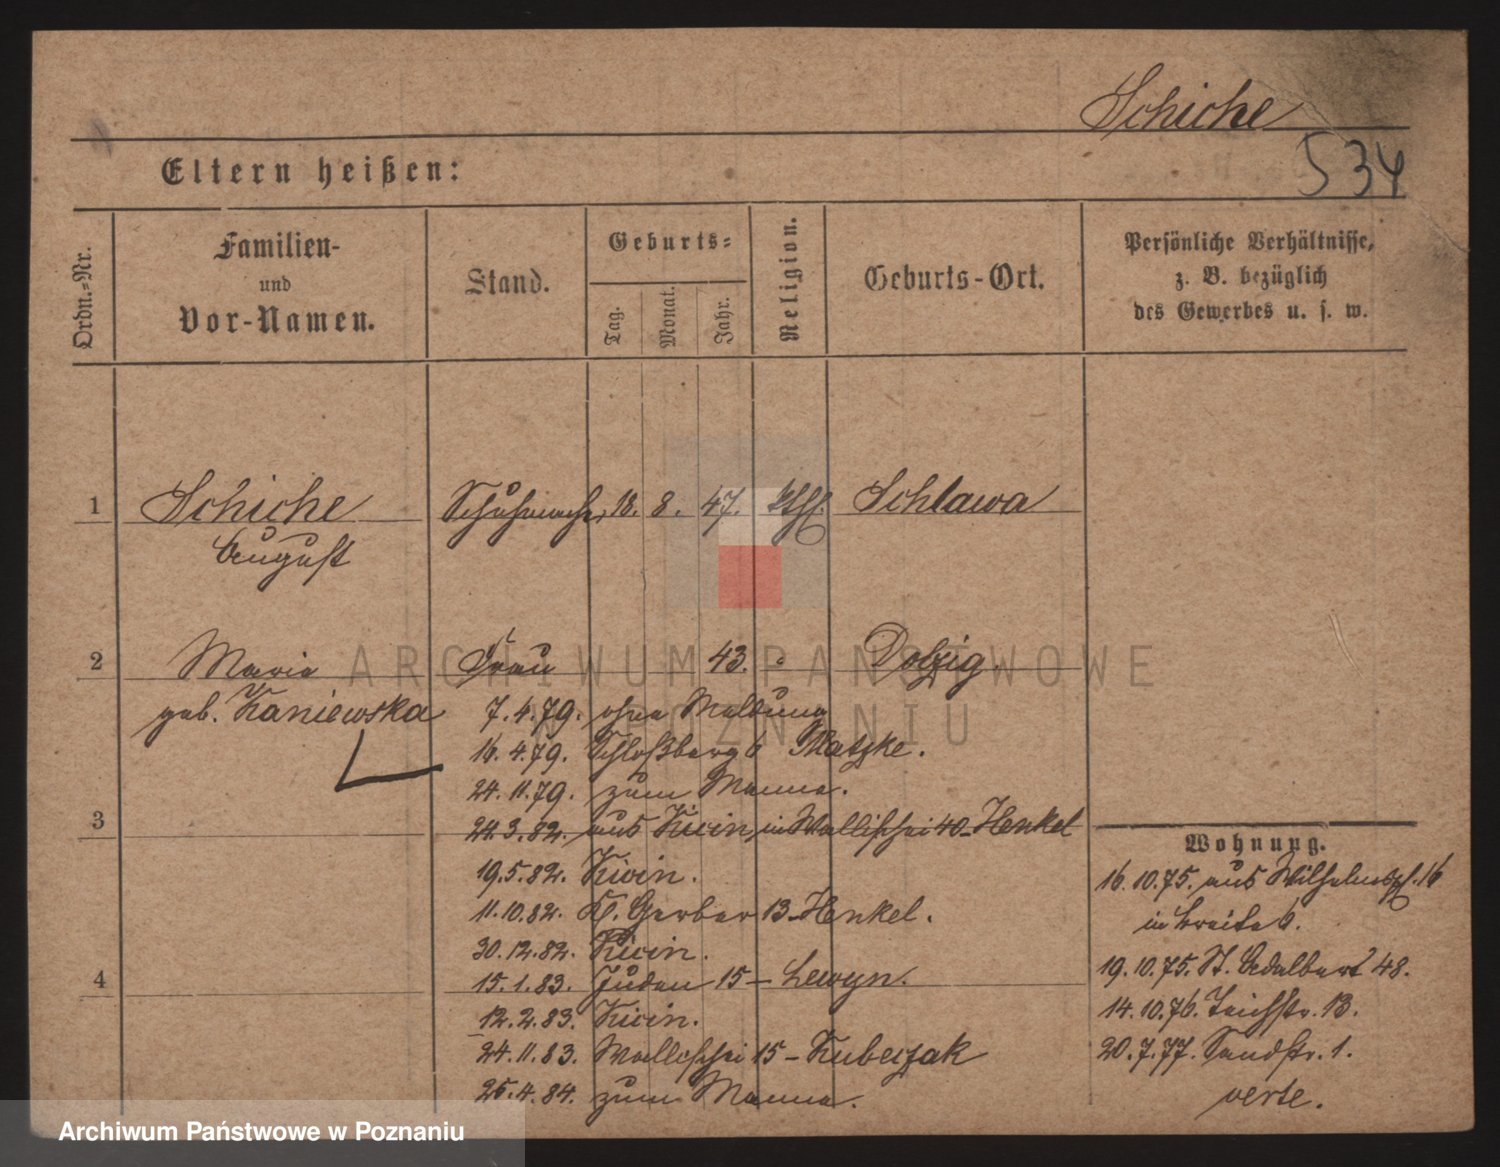 Schiche
534
Eltern heißen:
Ordn.-Nr.
Familien-
und
Vor-Namen.
Stand.
Geburts-
Tag.
Monat.
Jahr.
Religion.
Geburts-Ort.
Persönliche Verhältnisse,
z. B. bezüglich
des Gewerbes u. s. w.
1 Schiche Schuhmacher 18. 8. 47. kth. Schlawa
August
2 Maria Frau 43. " Dolzig.
geb. Kaniewska 7.4.79. ohne Meldung
16.4.79. Schloßberg 6 Matzke.
24.11.79. zum Manne.
3 22.3.82. aus Kicin, in Wallischei 40-Henkel
19.5.82. Kicin.
11.10.82. Kl. Gerber 13-Henkel.
30.12.82. Kicin.
4 15.1.83. Juden 15 - Lewyn.
12.2.83. Kicin.
24.11.83. Wallischei 15 - Kubeczak
25.4.84. zum Manne.
Wohnung.
16.10.75. aus Wilhelmspl. 16
in Breite 6.
19.10.75. St. Adalbert 48.
14.10.76. Teichstr. 13.
20.7.77. Sandstr. 1.
verte.
ARCHIWUM PAŃSTWOWE
W POZNANIU
Archiwum Państwowe w Poznaniu